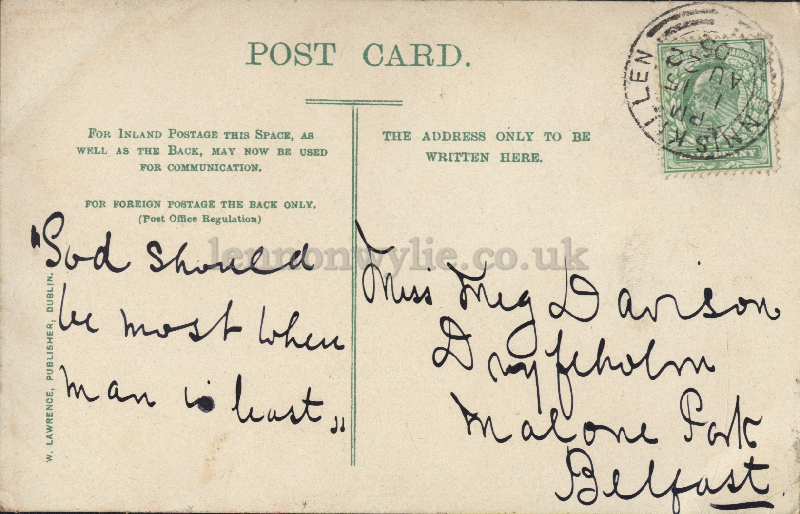 POST CARD.
FOR INLAND POSTAGE THIS SPACE, AS
WELL AS THE BACK, MAY NOW BE USED
FOR COMMUNICATION.
FOR FOREIGN POSTAGE THE BACK ONLY.
(Post Office Regulation)
THE ADDRESS ONLY TO BE
WRITTEN HERE.
ENNISKILLEN
5 PM
AU 1
W. LAWRENCE, PUBLISHER, DUBLIN.
"God should
be most when
man is least"
Miss Meg Davison
Dryfeholm
Malone Park
Belfast
lennonwylie.co.uk